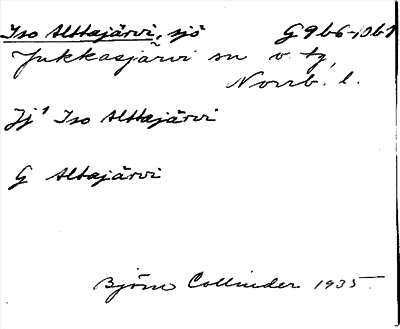 Iso Alttajärvi, sjö G9b6-10b1
Jukkasjärvi sn o. tg,
Norrb. l.
Jj¹ Iso Alttajärvi
G Altajärvi
Björn Collinder 1935